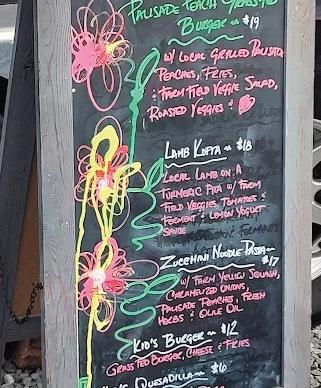 PALISADE PEACH GRASSFED
BURGER ~ $19
W/ LOCAL GRILLED PALISADE
PEACHES, FRIES,
& FARM FIELD VEGGIE SALAD,
ROASTED VEGGIES &
LAMB KOFTA ~ $18
LOCAL LAMB ON A
TURMERIC PITA W/ FARM
FIELD VEGGIES, TOMATOES &
FERMENT & LEMON YOGURT
SAUCE
ZUCCHINI NOODLE PASTA ~
$17
W/ FARM YELLOW SQUASH,
CARAMELIZED ONIONS,
PALISADE PEACHES, FRESH
HERBS & OLIVE OIL
KID'S BURGER ~ $12
GRASSFED BURGER, CHEESE & FRIES
QUESADILLA ~ $10